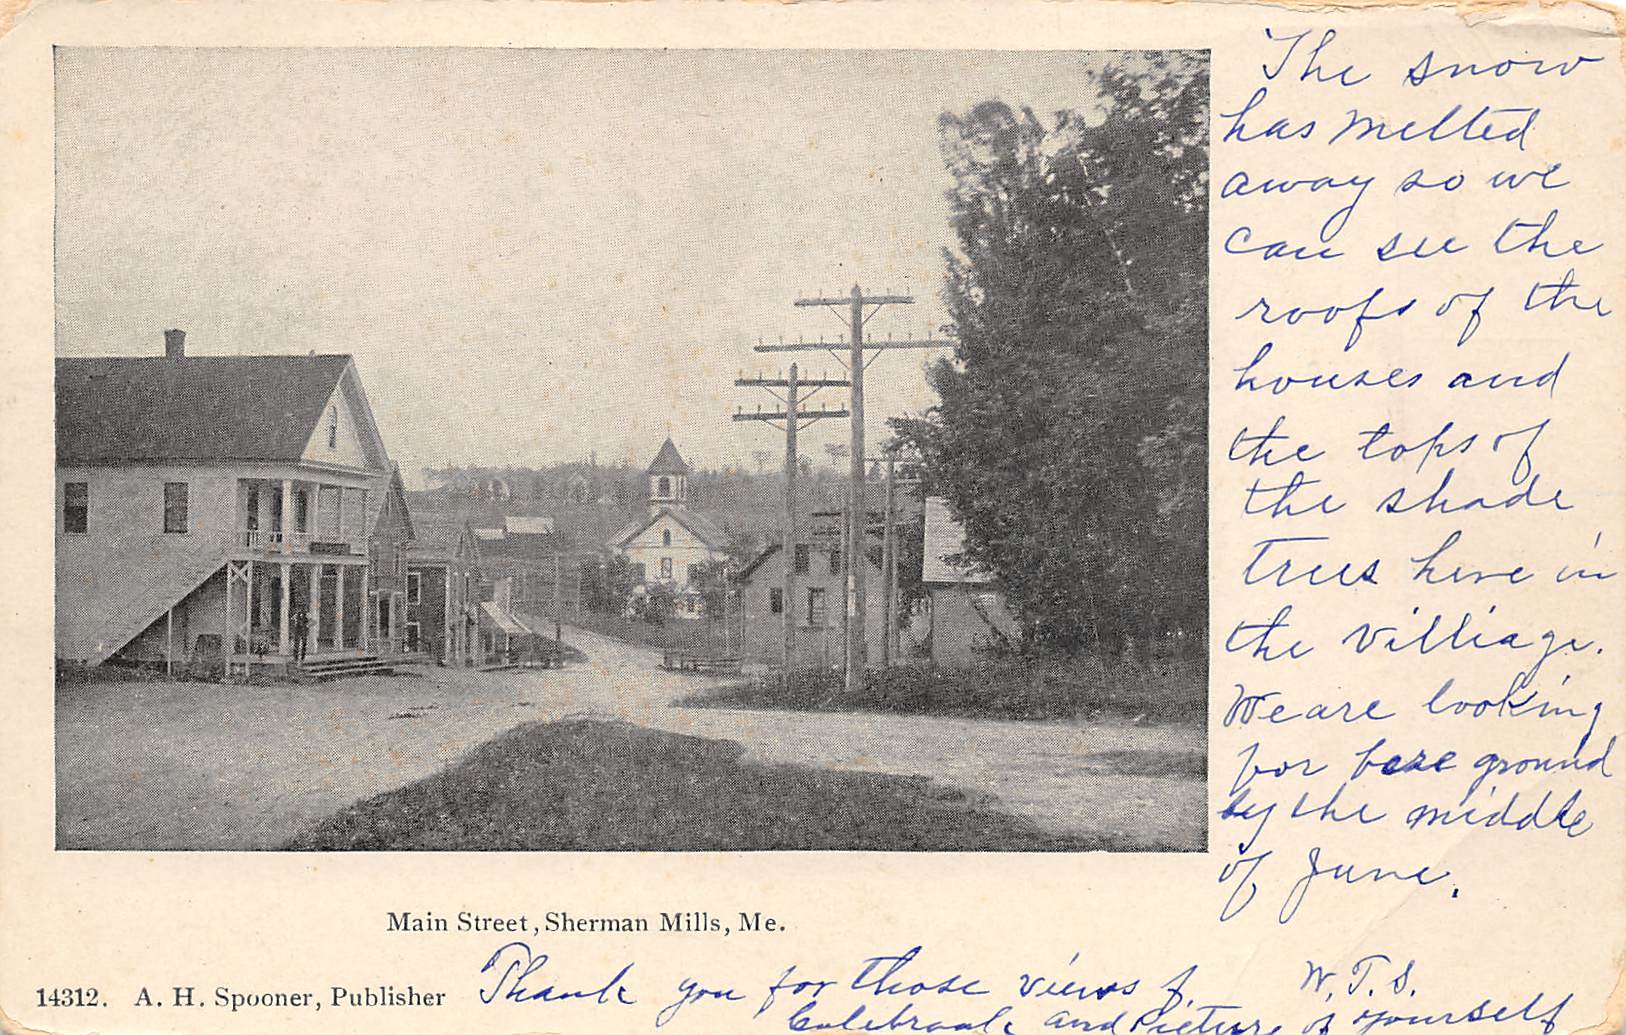 The snow
has melted
away so we
can see the
roofs of the
houses and
the tops of
the shade
trees here in
the villiage.
We are looking
for bare ground
by the middle
of June.
W.T.S.
Main Street, Sherman Mills, Me.
14312. A. H. Spooner, Publisher
Thank you for those views f.
Colebrook and Picture of yourself